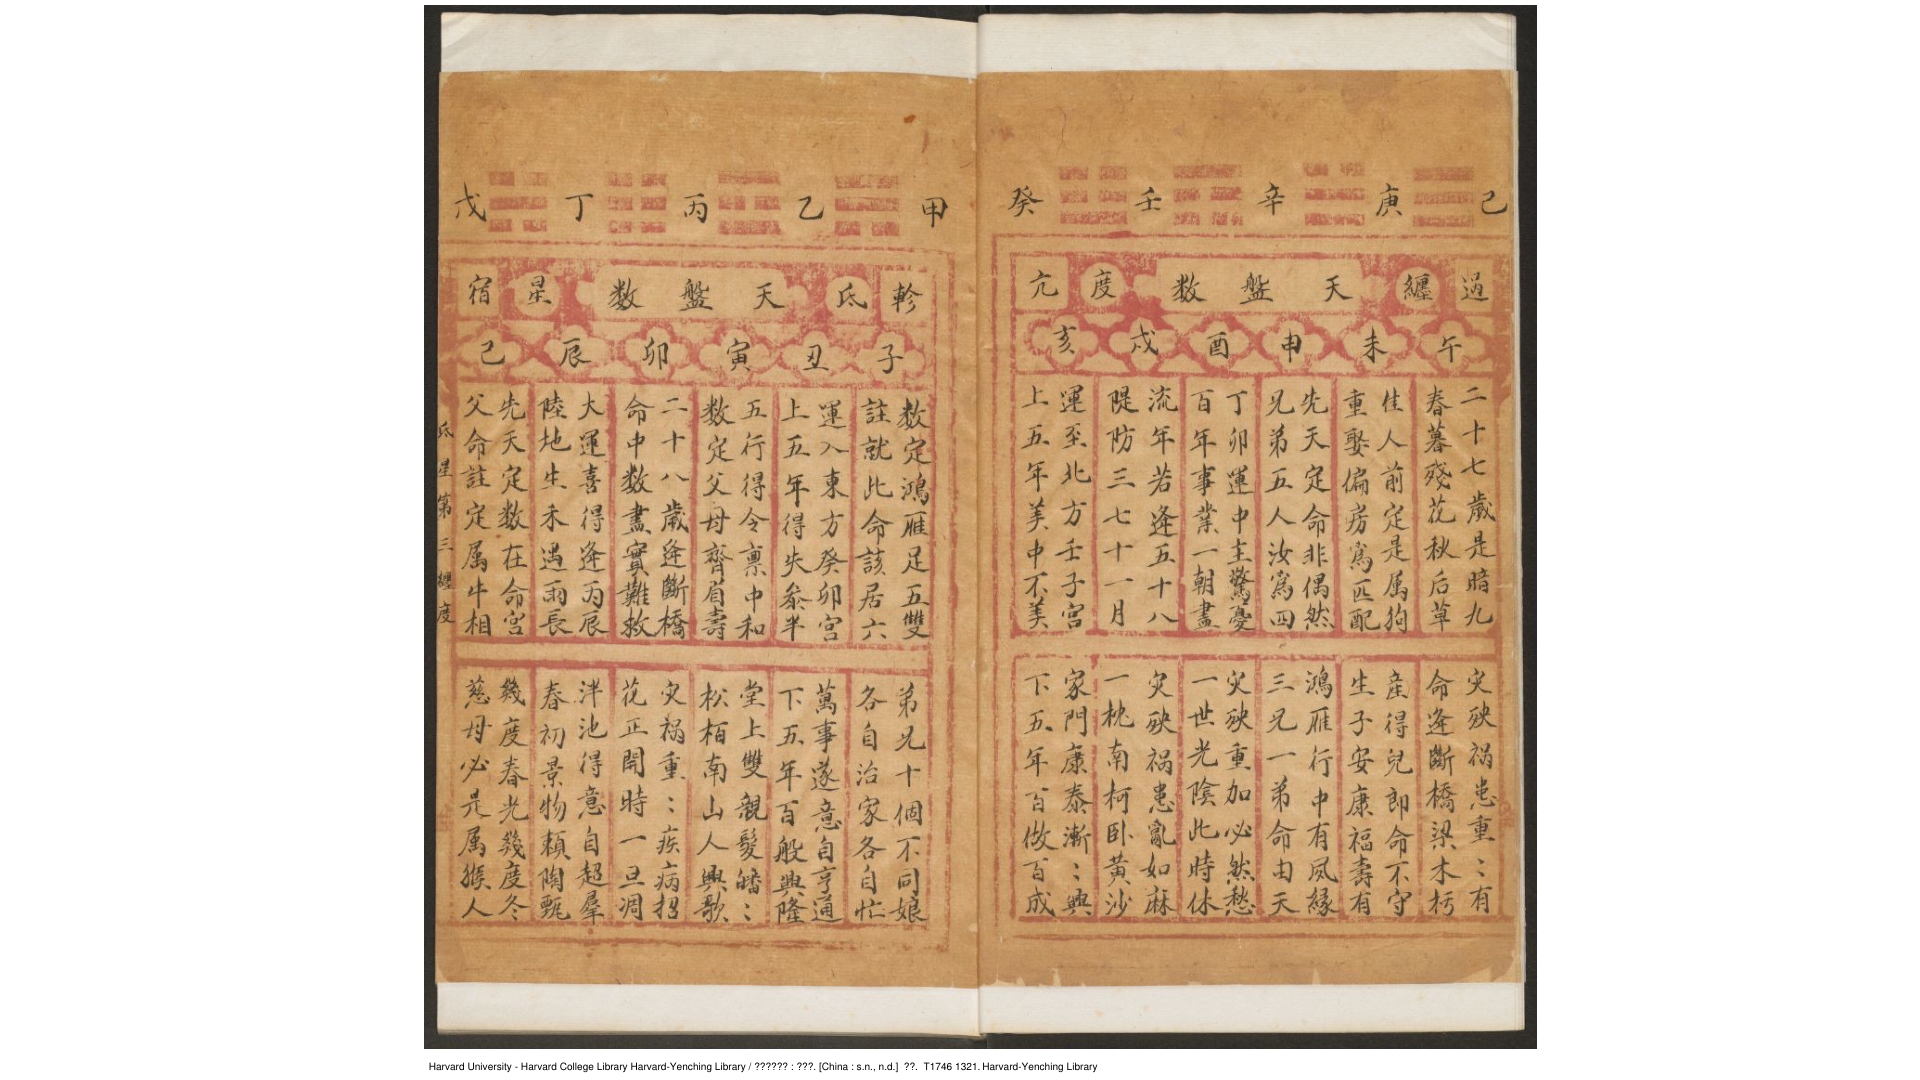 己庚辛壬癸
過纒天盤数度亢
午未申酉戌亥
二十七歲是暗九
春暮殘花秋后草
佳人前定是属狗
重娶偏房為匹配
先天定命非偶然
兄弟五人汝為四
丁卯運中主驚憂
百年事業一朝盡
流年若逢五十八
隄防三七十一月
運至北方壬子宮
上五年美中不美
灾殃祸患重：有
命逢斷橋梁木朽
産得兒郎命不守
生子安康福壽有
鴻雁行中有夙緣
三兄一弟命由天
灾殃重加必然愁
一世光陰此時休
灾殃祸患亂如麻
一枕南柯卧黃沙
家門康泰漸：興
下五年百做百成
甲乙丙丁戊
軫氐天盤数星宿
子丑寅卯辰巳
数定鴻雁足五雙
註就此命該居六
運入東方癸卯宮
上五年得失參半
五行得令禀中和
数定父母齊眉壽
二十八歲逢斷橋
命中数盡實難救
大運喜得逢丙辰
陸地生禾遇雨長
先天定数在命宮
父命註定属牛相
弟兄十個不同娘
各自治家各自忙
萬事遂意自亨通
下五年百般興隆
堂上雙親髮皤：
松栢南山人興歌
灾祸重：疾病招
花正開時一旦凋
泮池得意自超羣
春初景物賴陶甄
幾度春光幾度冬
慈母必是属猴人
氐星第三纒度
Harvard University - Harvard College Library Harvard-Yenching Library / ?????? : ???. [China : s.n., n.d.] ??. T1746 1321. Harvard-Yenching Library